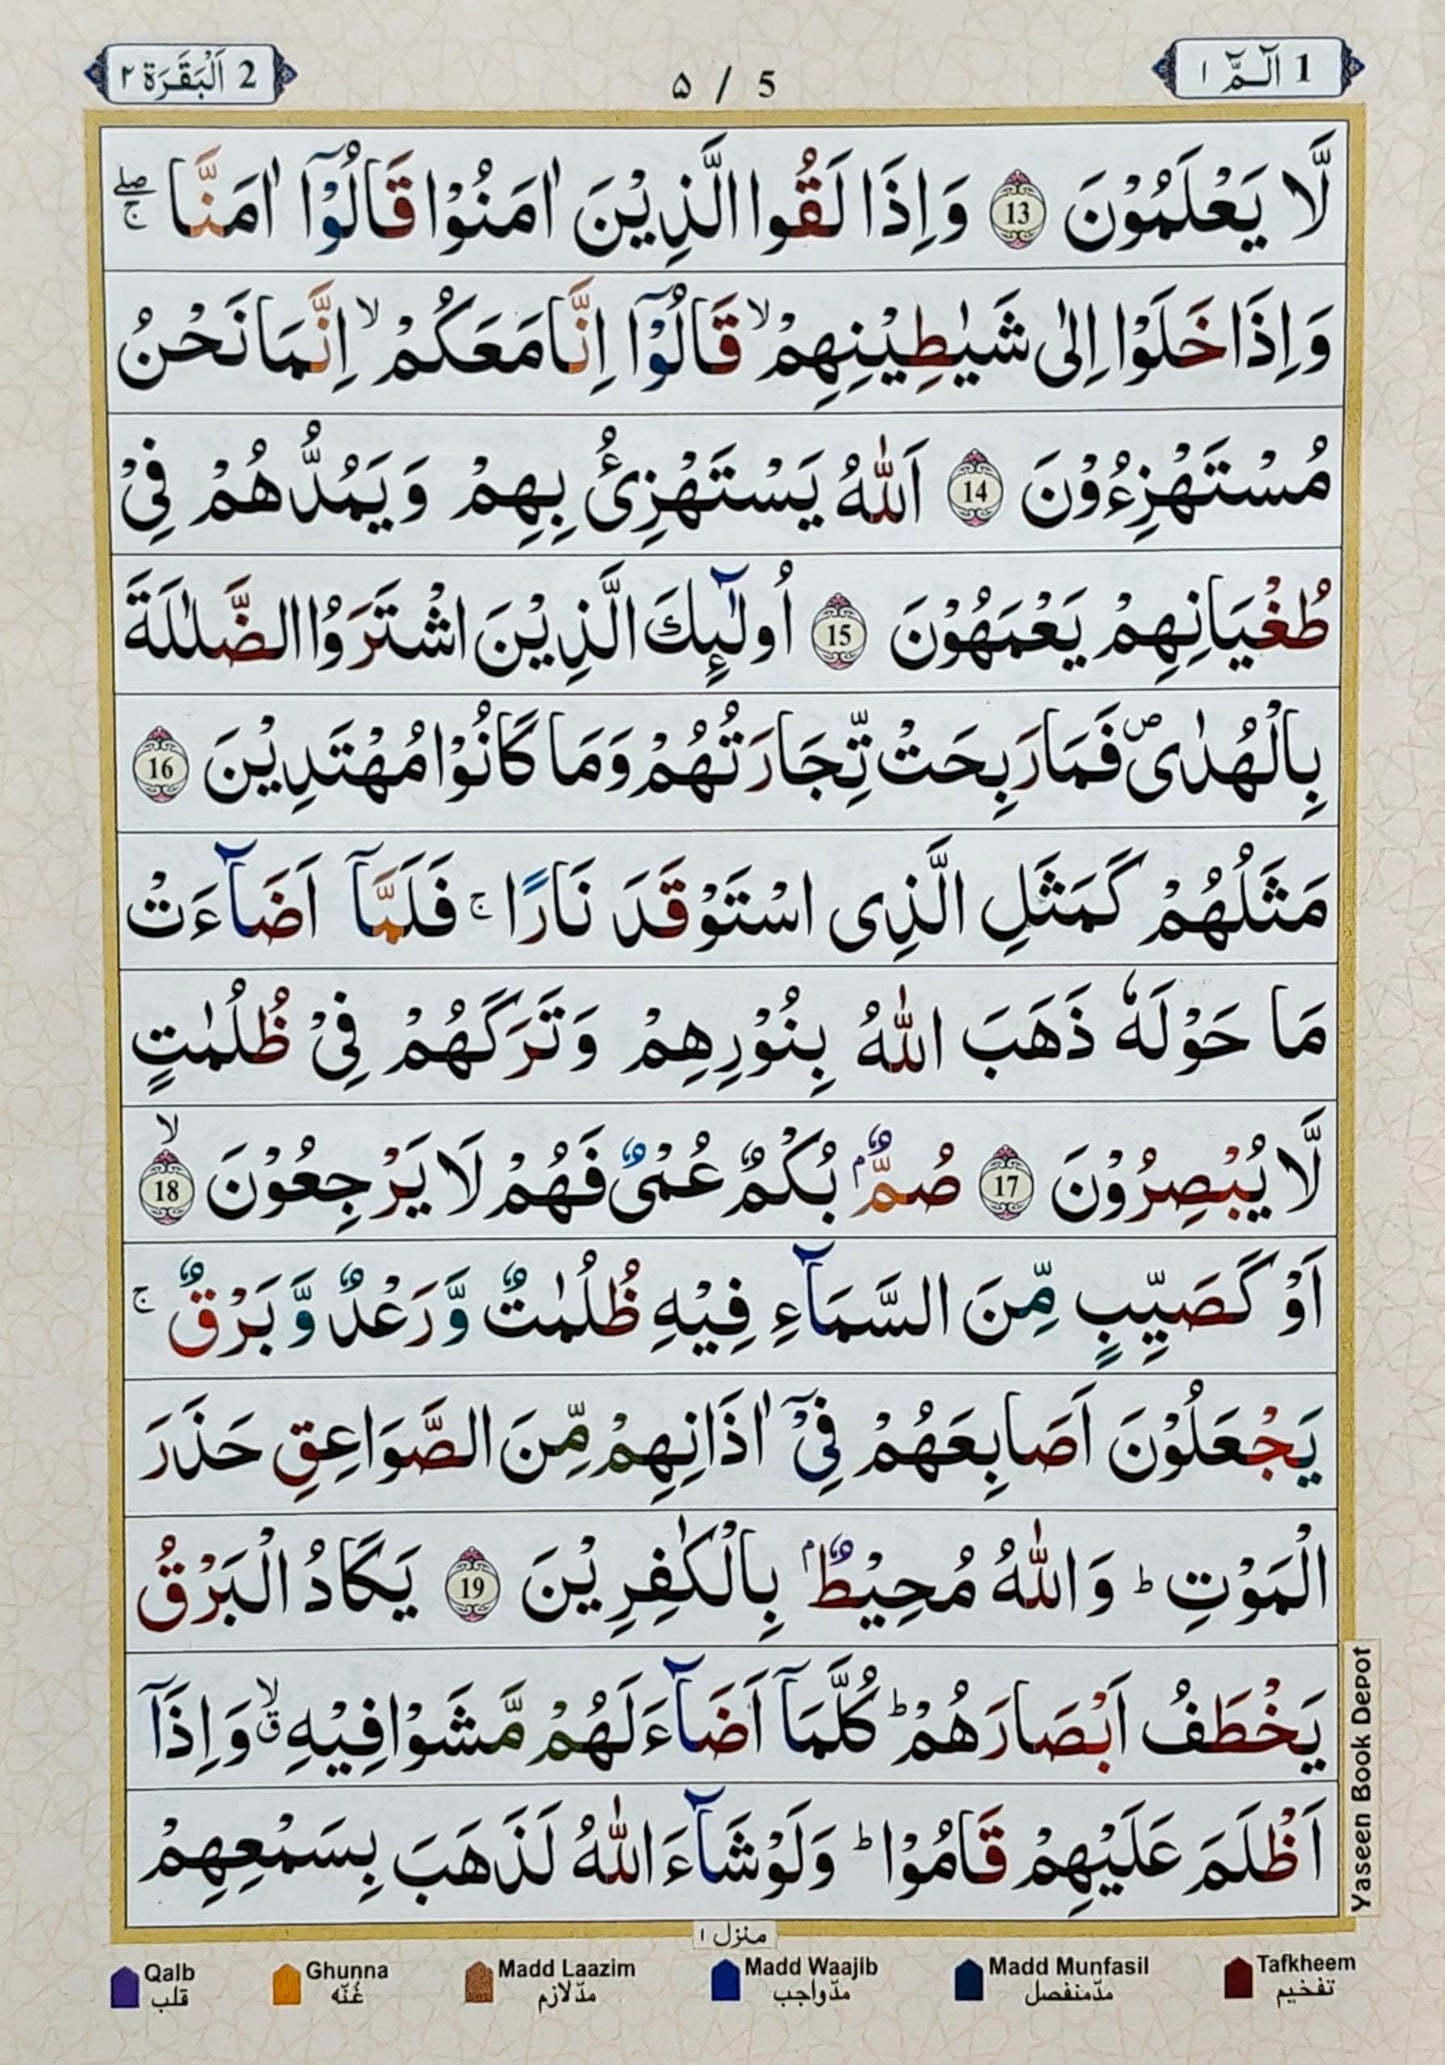 2 اَلْبَقَرَة ٢
۵ / 5
1 الٓمّٓ ١
لَّا يَعْلَمُوْنَ 13 وَاِذَا لَقُوا الَّذِيْنَ اٰمَنُوْا قَالُوْٓا اٰمَنَّا ۚۖ
وَاِذَا خَلَوْا اِلٰى شَيٰطِيْنِهِمْ ۙ قَالُوْٓا اِنَّا مَعَكُمْ ۙ اِنَّمَا نَحْنُ
مُسْتَهْزِءُوْنَ 14 اَللّٰهُ يَسْتَهْزِئُ بِهِمْ وَيَمُدُّهُمْ فِيْ
طُغْيَانِهِمْ يَعْمَهُوْنَ 15 اُولٰٓئِكَ الَّذِيْنَ اشْتَرَوُا الضَّلٰلَةَ
بِالْهُدٰى ۪ فَمَا رَبِحَتْ تِّجَارَتُهُمْ وَمَا كَانُوْا مُهْتَدِيْنَ 16
مَثَلُهُمْ كَمَثَلِ الَّذِى اسْتَوْقَدَ نَارًا ۚ فَلَمَّآ اَضَآءَتْ
مَا حَوْلَهٗ ذَهَبَ اللّٰهُ بِنُوْرِهِمْ وَتَرَكَهُمْ فِيْ ظُلُمٰتٍ
لَّا يُبْصِرُوْنَ 17 صُمٌّۢ بُكْمٌ عُمْىٌ فَهُمْ لَا يَرْجِعُوْنَ ۙ 18
اَوْ كَصَيِّبٍ مِّنَ السَّمَآءِ فِيْهِ ظُلُمٰتٌ وَّرَعْدٌ وَّبَرْقٌ ۚ
يَجْعَلُوْنَ اَصَابِعَهُمْ فِيْٓ اٰذَانِهِمْ مِّنَ الصَّوَاعِقِ حَذَرَ
الْمَوْتِ ؕ وَاللّٰهُ مُحِيْطٌۢ بِالْكٰفِرِيْنَ 19 يَكَادُ الْبَرْقُ
يَخْطَفُ اَبْصَارَهُمْ ؕ كُلَّمَآ اَضَآءَ لَهُمْ مَّشَوْا فِيْهِ ۙۗ وَاِذَآ
اَظْلَمَ عَلَيْهِمْ قَامُوْا ؕ وَلَوْ شَآءَ اللّٰهُ لَذَهَبَ بِسَمْعِهِمْ
Yaseen Book Depot
منزل ١
Qalb Ghunna Madd Laazim Madd Waajib Madd Munfasil Tafkheem
قلب غُنّه مدّلازم مدّواجب مدّمنفصل تفخیم